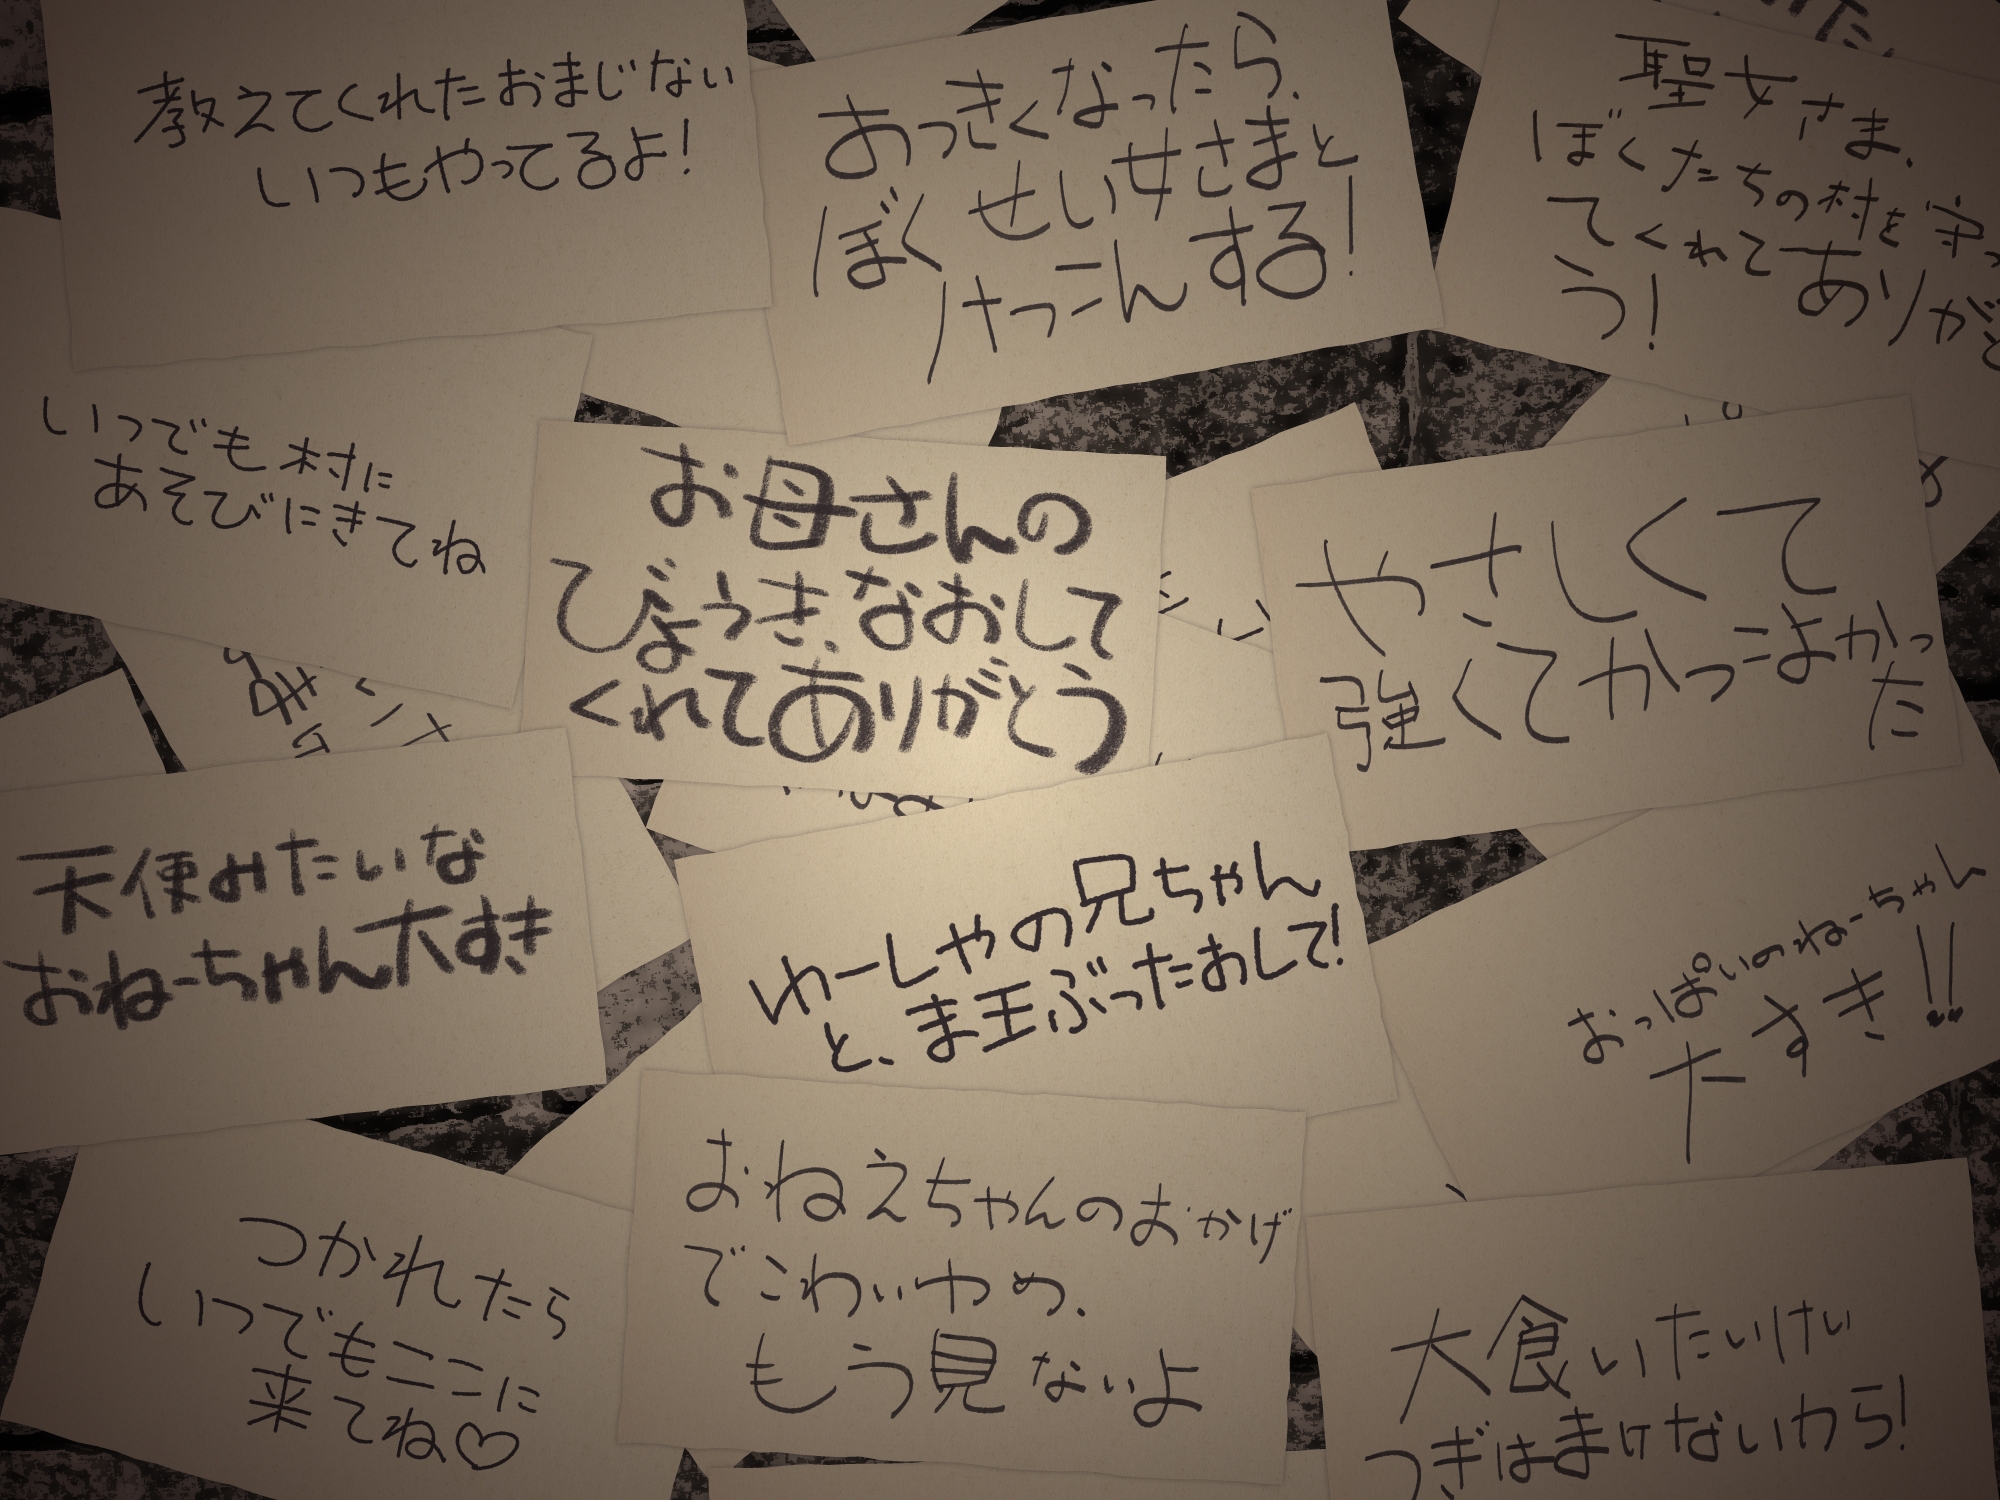 教えてくれたおまじない
いつもやってるよ！
おっきくなったら、
ぼくせい女さまと
けっこんする！
聖女さま、
ぼくたちの村を守っ
てくれてありがと
う！
いつでも村に
あそびにきてね
お母さんの
びょうき、なおして
くれてありがとう
やさしくて
強くてかっこよかっ
た
天使みたいな
おねーちゃん大すき
ゆーしゃの兄ちゃん
と、ま王ぶったおして！
おっぱいのねーちゃん
すき！！
つかれたら
いつでもここに
来てね♡
おねえちゃんのおかげ
でこわいゆめ、
もう見ないよ
大食いたいけい
つぎはまけないから！